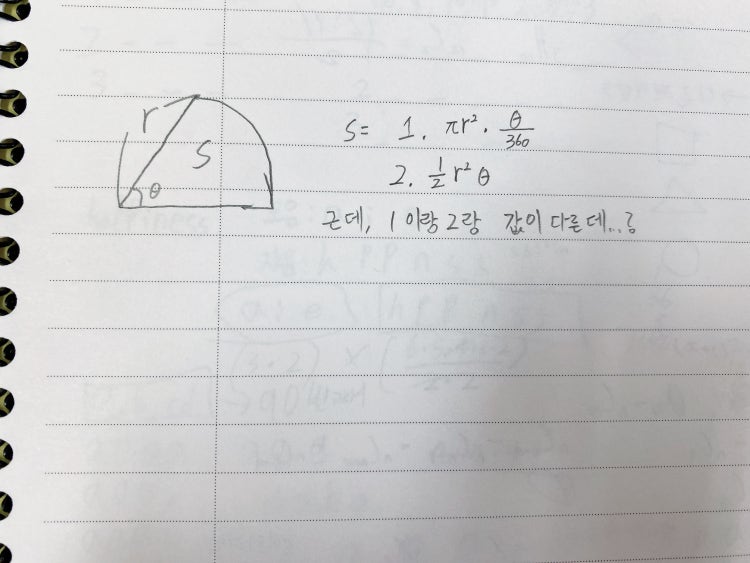 r
S
θ
S= 1. πr²・θ/360
2. 1/2 r²θ
근데, 1이랑 2랑 값이 다른데..?